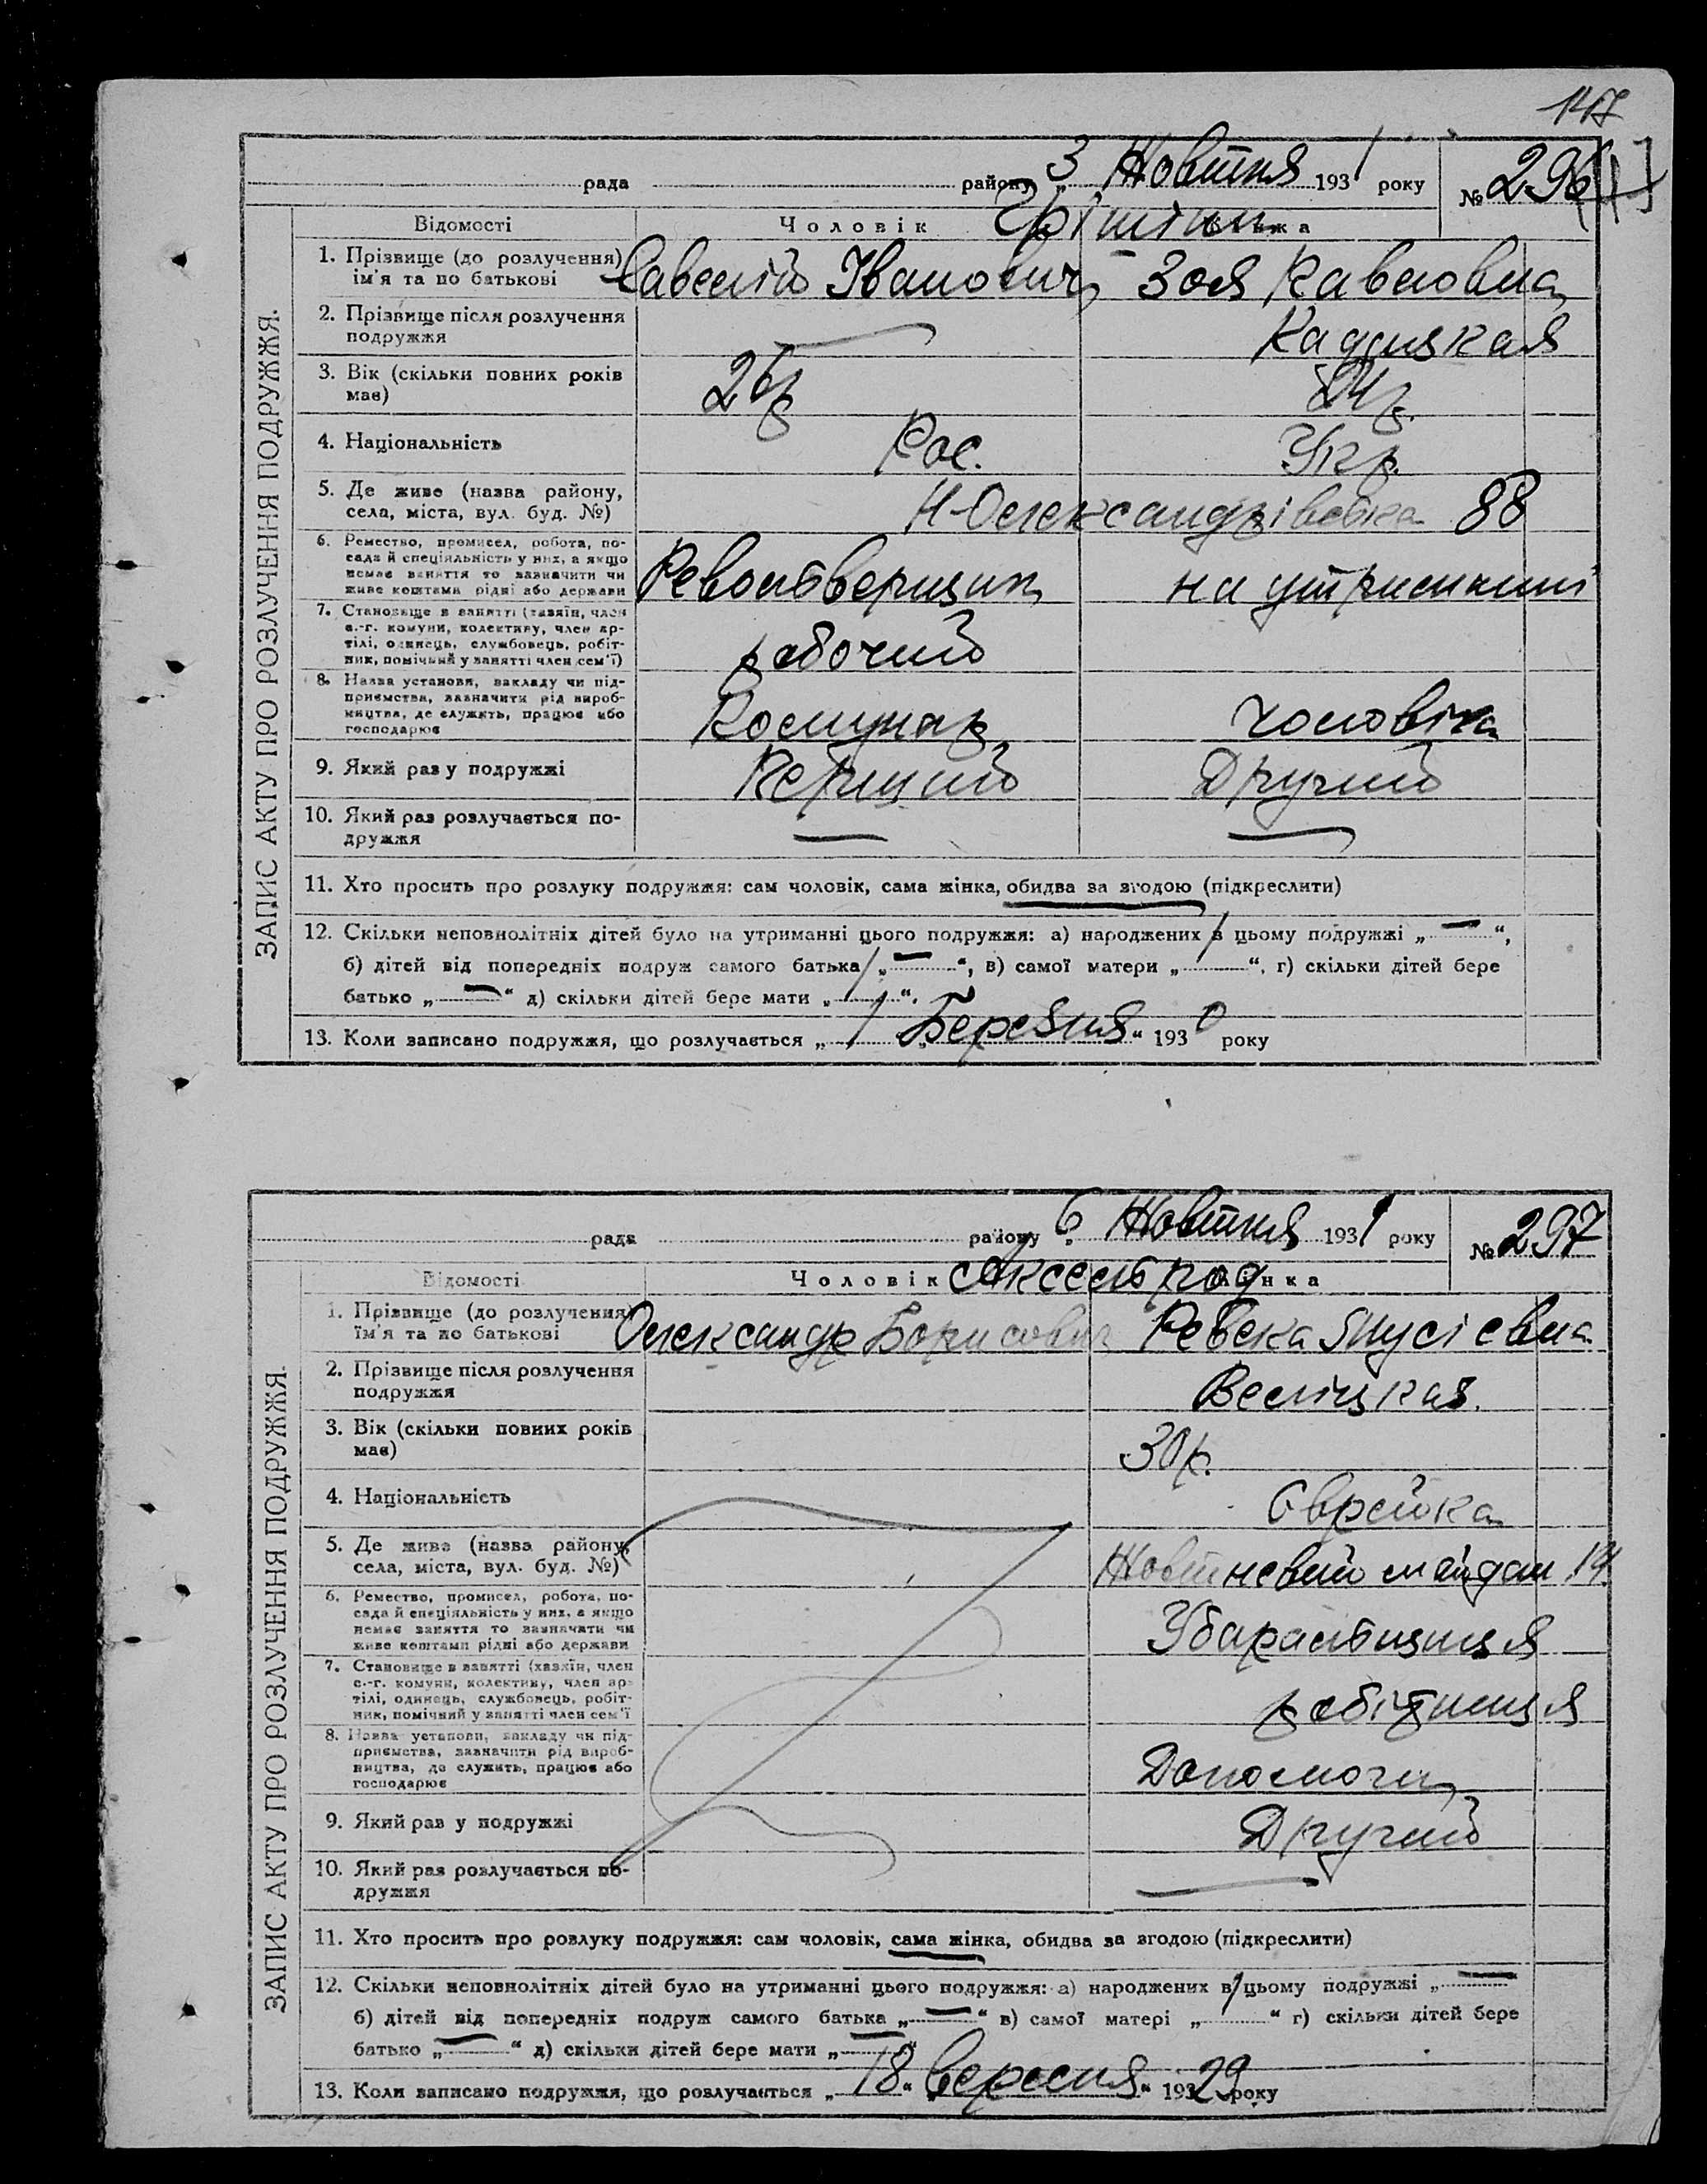 147
рада району 3 Жовтня 1931 року № 296
Відомості Чоловік Грішін
1. Прізвище (до розлучення) ім'я та по батькові Савелій Іванович Зоя Павловна
2. Прізвище після розлучення подружжя
3. Вік (скільки повних років має) 26р 24р.
4. Національність Рос. Укр.
5. Де живе (назва району, села, міста, вул. буд. №) Н-Олександрівська 88
6. Ремество, промисел, робота, по-
сада й спеціяльність у них, а якщо
немає заняття то зазначити чи
живе коштами рідні або держави Револьверщик на утриманні
7. Становище в занятті (хазяїн, член
с.-г. комуни, колективу, член ар-
тілі, одинець, службовець, робіт-
ник, помічний у занятті член сем'ї) рабочий
8. Назва установи, закладу чи під-
приємства, зазначити рід вироб-
ництва, де служить, працює або
господарює Комунар чоловіка
9. Який раз у подружжі Перший Другий
10. Який раз розлучається по-
дружжя — —
11. Хто просить про розлуку подружжя: сам чоловік, сама жінка, обидва за згодою (підкреслити)
12. Скільки неповнолітніх дітей було на утриманні цього подружжя: а) народжених в цьому подружжі „—“,
б) дітей від попередніх подруж самого батька „—“, в) самої матери „ “, г) скільки дітей бере
батько „—“ д) скільки дітей бере мати „ “.
13. Коли записано подружжя, що розлучається „1 „Березня“ 1930 року
ЗАПИС АКТУ ПРО РОЗЛУЧЕННЯ ПОДРУЖЖЯ.
рада району 6 Жовтня 1931 року № 297
Відомості Чоловік Аксельрод Жінка
1. Прізвище (до розлучення) ім'я та по батькові Олександр Борисович Ревека
2. Прізвище після розлучення подружжя Веліцкая.
3. Вік (скільки повних років має) 30р.
4. Національність Єврейка
5. Де живе (назва району, села, міста, вул. буд. №) Жовтневий майдан 14
6. Ремество, промисел, робота, по-
сада й спеціяльність у них, а якщо
немає заняття то зазначити чи
живе коштами рідні або держави
7. Становище в занятті (хазяїн, член
с.-г. комуни, колективу, член ар-
тілі, одинець, службовець, робіт-
ник, помічний у занятті член сем'ї робітниця
8. Назва установи, закладу чи під-
приємства, зазначити рід вироб-
ництва, де служить, працює або
господарює
9. Який раз у подружжі Другий
10. Який раз розлучається по-
дружжя —
11. Хто просить про розлуку подружжя: сам чоловік, сама жінка, обидва за згодою (підкреслити)
12. Скільки неповнолітніх дітей було на утриманні цього подружжя: а) народжених в цьому подружжі „—
б) дітей від попередніх подруж самого батька „—“ в) самої матері „ “ г) скільки дітей бере
батько „—“ д) скільки дітей бере мати „—“
13. Коли записано подружжя, що розлучається „18“ „вересня“ 19329 року
ЗАПИС АКТУ ПРО РОЗЛУЧЕННЯ ПОДРУЖЖЯ.